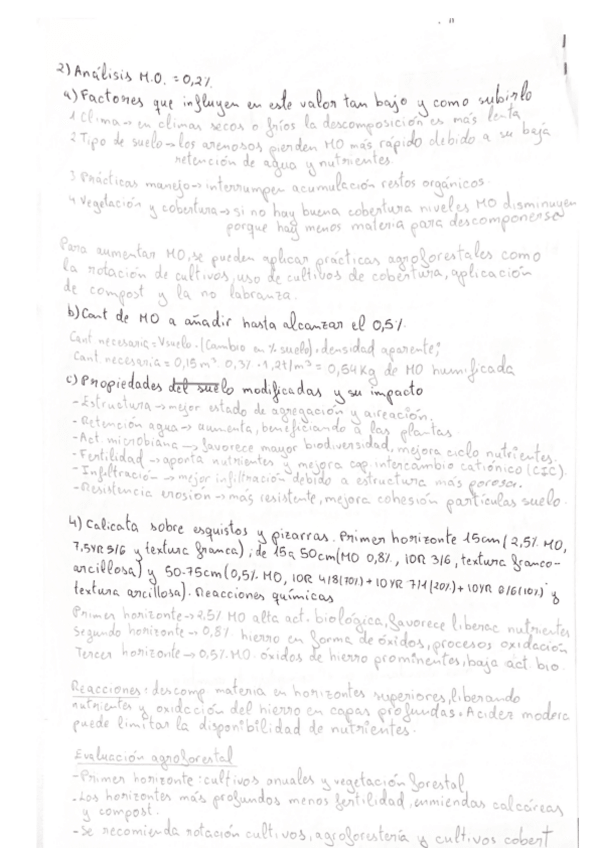 2) Análisis M.O. = 0,2%
a) Factores que influyen en este valor tan bajo y como subirlo
1 Clima → en climas secos o fríos la descomposición es más lenta
2 Tipo de suelo → los arenosos pierden MO más rápido debido a su baja
retención de agua y nutrientes.
3 Prácticas manejo → interrumpen acumulación restos orgánicos.
4 Vegetación y cobertura → si no hay buena cobertura niveles MO disminuyen
porque hay menos materia para descomponerse
Para aumentar MO, se pueden aplicar prácticas agroforestales como
la rotación de cultivos, uso de cultivos de cobertura, aplicación
de compost y la no labranza.
b) Cant de MO a añadir hasta alcanzar el 0,5%
Cant necesaria = Vsuelo · (Cambio en % suelo) · densidad aparente;
Cant necesaria = 0,15m³ · 0,3% · 1,2t/m³ = 0,54Kg de MO humificada
c) Propiedades del suelo modificadas y su impacto
- Estructura → mejor estado de agregación y aireación.
- Retención agua → aumenta, beneficiando a las plantas.
- Act. microbiana → favorece mayor biodiversidad, mejora ciclo nutrientes.
- Fertilidad → aporta nutrientes y mejora cap. intercambio catiónico (CIC).
- Infiltración → mejor infiltración debido a estructura más porosa.
- Resistencia erosión → más resistente, mejora cohesión partículas suelo.
4) Calicata sobre esquistos y pizarras. Primer horizonte 15cm (2,5% MO,
7,5YR 5/6 y textura franca); de 15 a 50cm (MO 0,8%, 10R 3/6, textura franco-
arcillosa) y 50-75cm (0,5% MO, 10R 4/8 (70%) + 10YR 7/1 (20%) + 10YR 8/6 (10%) y
textura arcillosa). Reacciones químicas
Primer horizonte → 2,5% MO alta act. biológica, favorece liberac nutrientes
Segundo horizonte → 0,8% hierro en forma de óxidos, procesos oxidación
Tercer horizonte → 0,5% MO. óxidos de hierro prominentes, baja act bio.
Reacciones: descomp materia en horizontes superiores, liberando
nutrientes y oxidación del hierro en capas profundas. Acidez modera
puede limitar la disponibilidad de nutrientes.
Evaluación agroforestal
- Primer horizonte: cultivos anuales y vegetación forestal
- Los horizontes más profundos menos fertilidad, enmiendas calcáreas
y compost.
- Se recomienda rotación cultivos, agroforestería y cultivos cobert